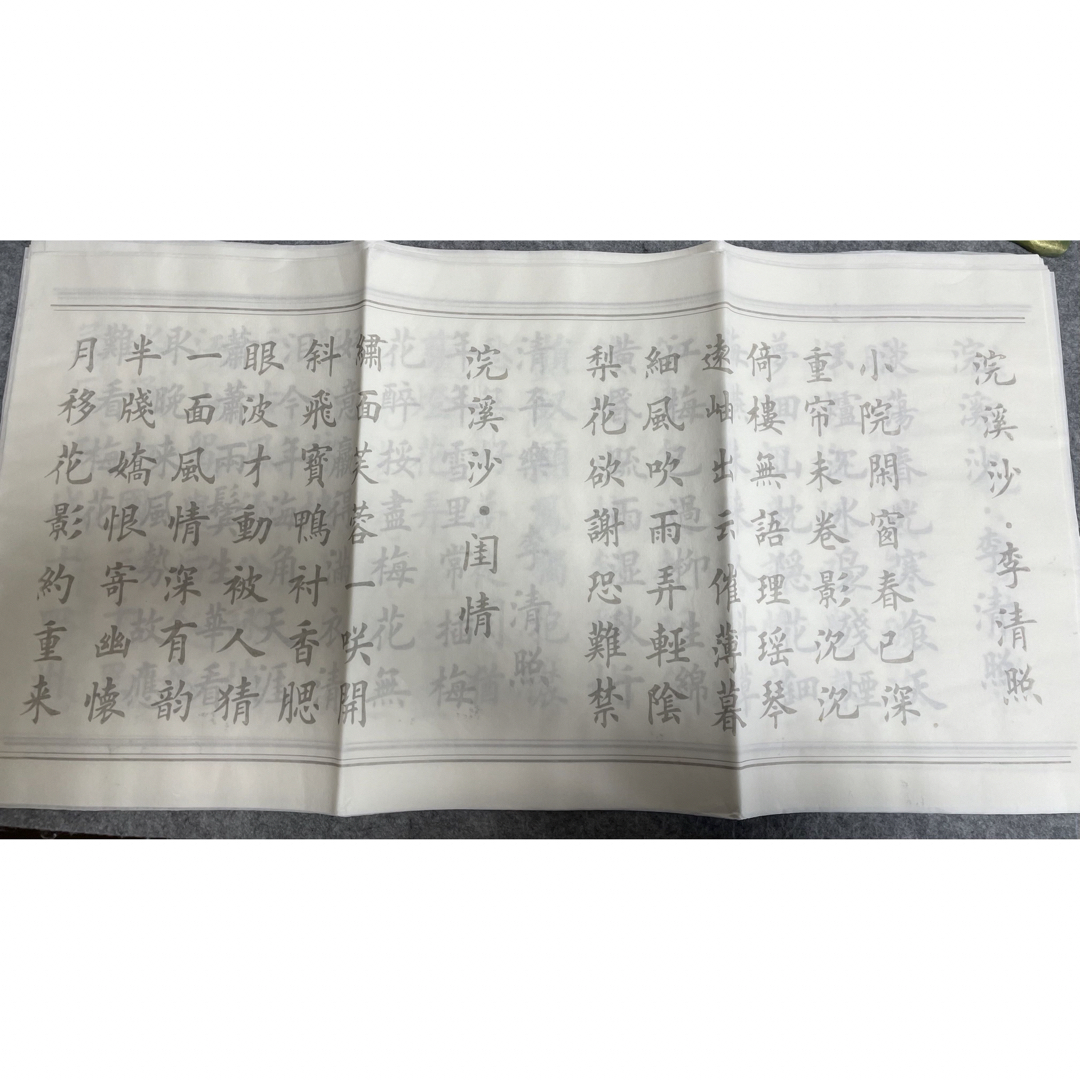 浣溪沙·李清照
小院閑窗春已深
重帘未卷影沉沉
倚樓無語理瑶琴
遠岫出云催薄暮
細風吹雨弄輕陰
梨花欲謝恐難禁
浣溪沙·閨情
繡面芙蓉一咲開
斜飛寶鴨衬香腮
眼波才動被人猜
一面風情深有韵
半牋嬌恨寄幽懷
月移花影約重来